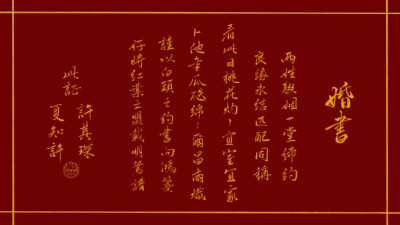 婚書
兩姓聯姻一堂締約
良緣永結匹配同稱
看此日桃花灼灼宜室宜家
卜他年瓜瓞綿綿爾昌爾熾
謹以白頭之約書向鴻箋
好將紅葉之盟載明鴛譜
此証
許其琛
夏知許